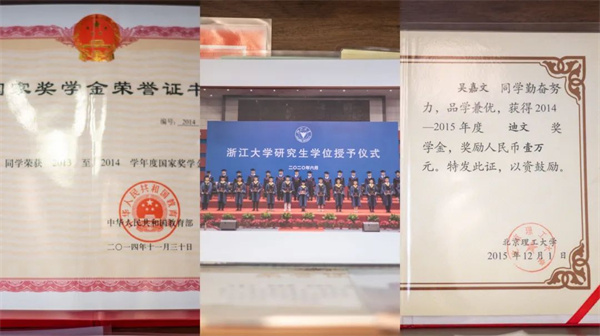 国家奖学金荣誉证书
编号: 2014
同学荣获 2013 至 2014 学年度国家奖学金
中华人民共和国教育部
中华人民共和国教育部
二〇一四年十一月三十日
浙江大学研究生学位授予仪式
二〇二〇年六月
吴嘉文 同学勤奋努
力，品学兼优，获得2014
—2015年度 迪文 奖
学金，奖励人民币壹万
元。特发此证，以资鼓励。
北京理工大学
2015年12月1日